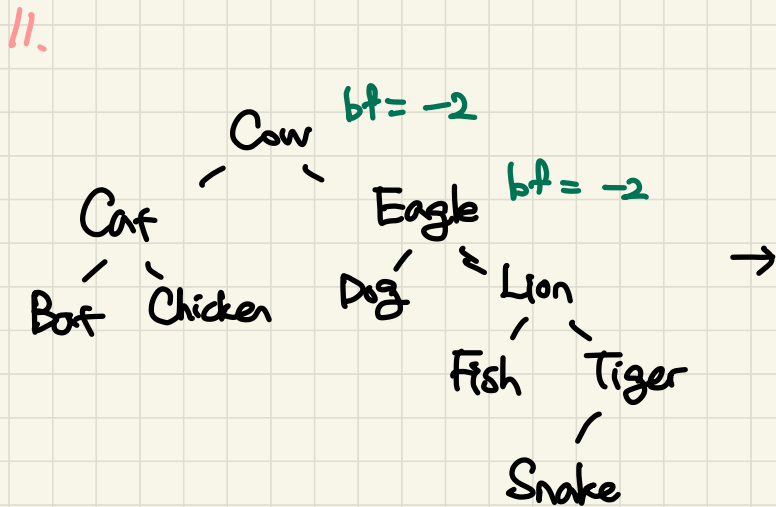 11.
Cow bf = -2
Cat Eagle bf = -2
Bat Chicken Dog Lion
Fish Tiger
Snake